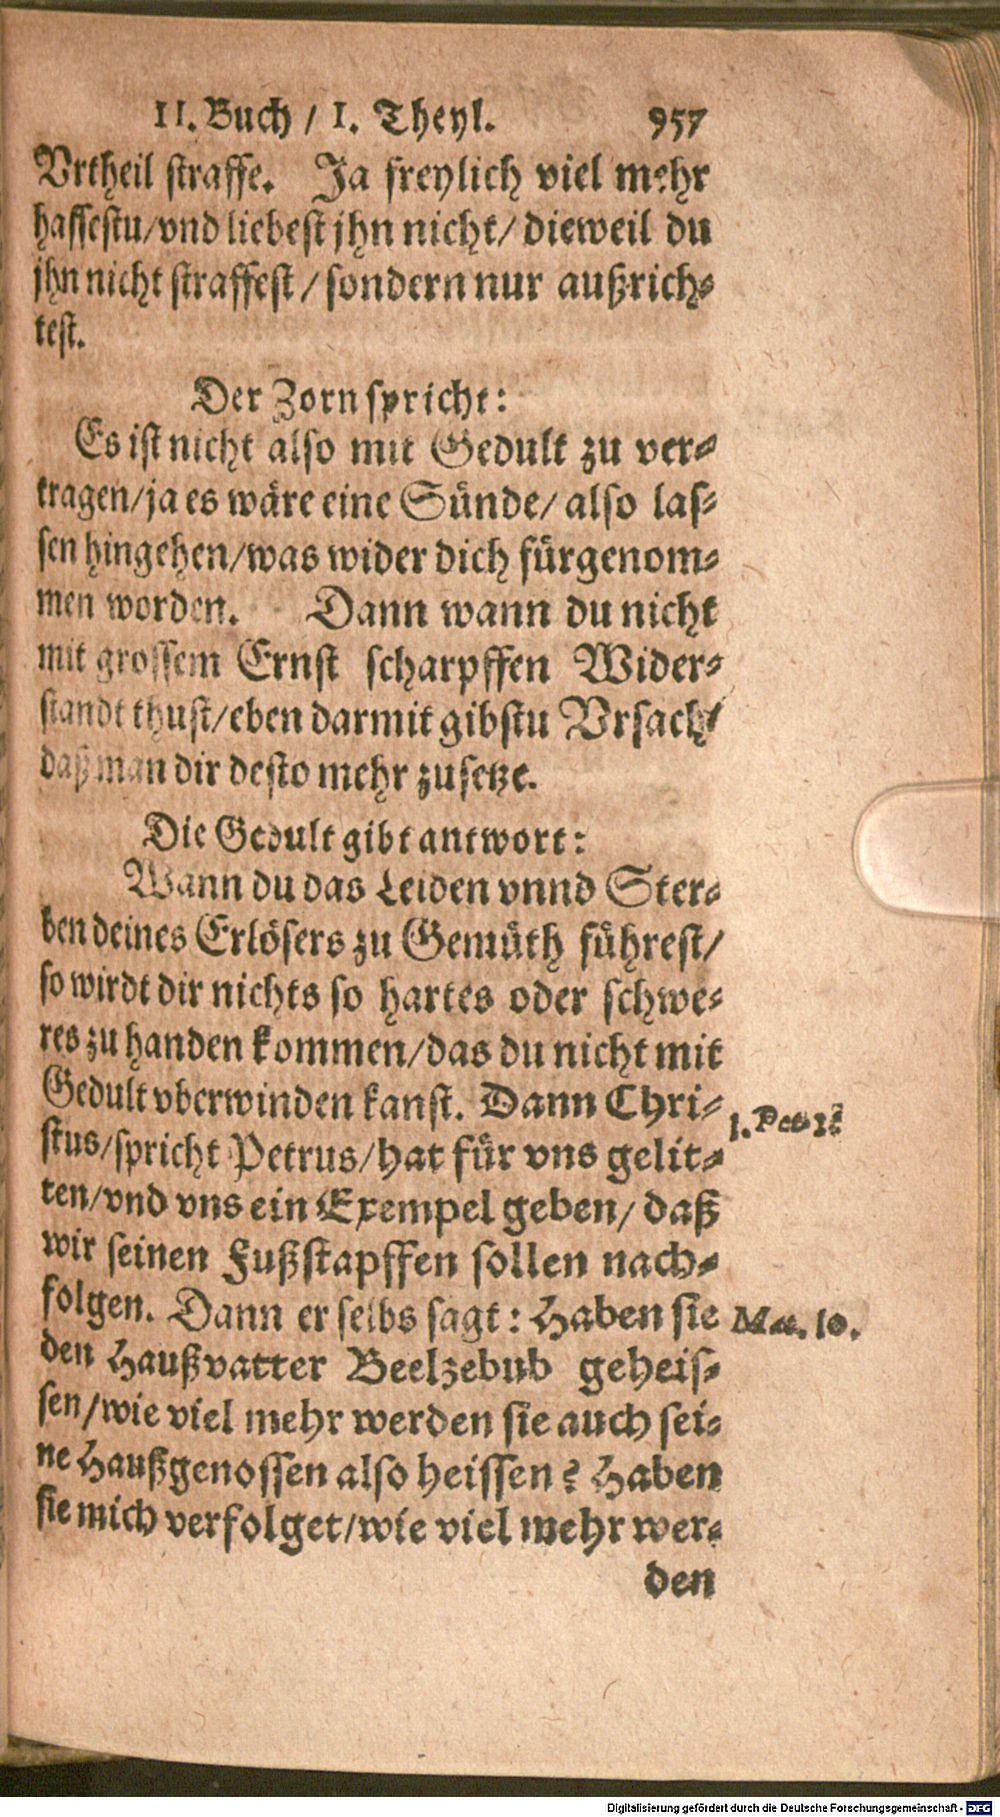 II. Buch / I. Theyl. 957
Vrtheil straffe. Ja freylich viel mehr
hassestu/vnd liebest jhn nicht/ dieweil du
jhn nicht straffest / sondern nur außrich-
test.
Der Zorn spricht:
Es ist nicht also mit Gedult zu ver-
tragen/ja es wäre eine Sünde/ also las-
sen hingehen/was wider dich fürgenom-
men worden. Dann wann du nicht
mit grossem Ernst scharpffen Wider-
standt thust/eben darmit gibstu Vrsach/
daß man dir desto mehr zusetze.
Die Gedult gibt antwort:
Wann du das Leiden vnnd Ster-
ben deines Erlösers zu Gemüth führest/
so wirdt dir nichts so hartes oder schwe-
res zu handen kommen/das du nicht mit
Gedult vberwinden kanst. Dann Chri-
stus/spricht Petrus/hat für vns gelit-
ten/vnd vns ein Exempel geben/ daß
wir seinen Fußstapffen sollen nach-
folgen. Dann er selbs sagt: Haben sie
den Haußvatter Beelzebub geheis-
sen/wie viel mehr werden sie auch sei-
ne Haußgenossen also heissen? Haben
sie mich verfolget/wie viel mehr wer-
den
1. Pet.
Mat. 10.
Digitalisierung gefördert durch die Deutsche Forschungsgemeinschaft - DFG